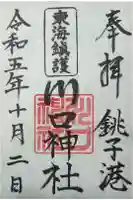 奉拝
銚子港
東海鎮護
川口神社
令和五年十月二日